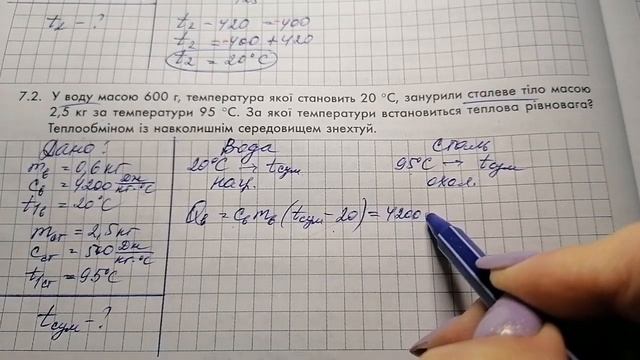 t₂ - ?
t₂ - 420 = -400
t₂ = -400 + 420
t₂ = 20°C
7.2. У воду масою 600 г, температура якої становить 20 °С, занурили сталеве тіло масою
2,5 кг за температури 95 °С. За якої температури встановиться теплова рівновага?
Теплообміном із навколишнім середовищем знехтуй.
Дано:
mв = 0,6 кг
cв = 4200 Дж/кг·°C
t₁в = 20°C
mст = 2,5 кг
cст = 500 Дж/кг·°C
t₁ст = 95°C
tсум - ?
Вода
20°C → tсум
наг.
Сталь
95°C → tсум
охол.
Qв = cв mв (tсум - 20) = 4200